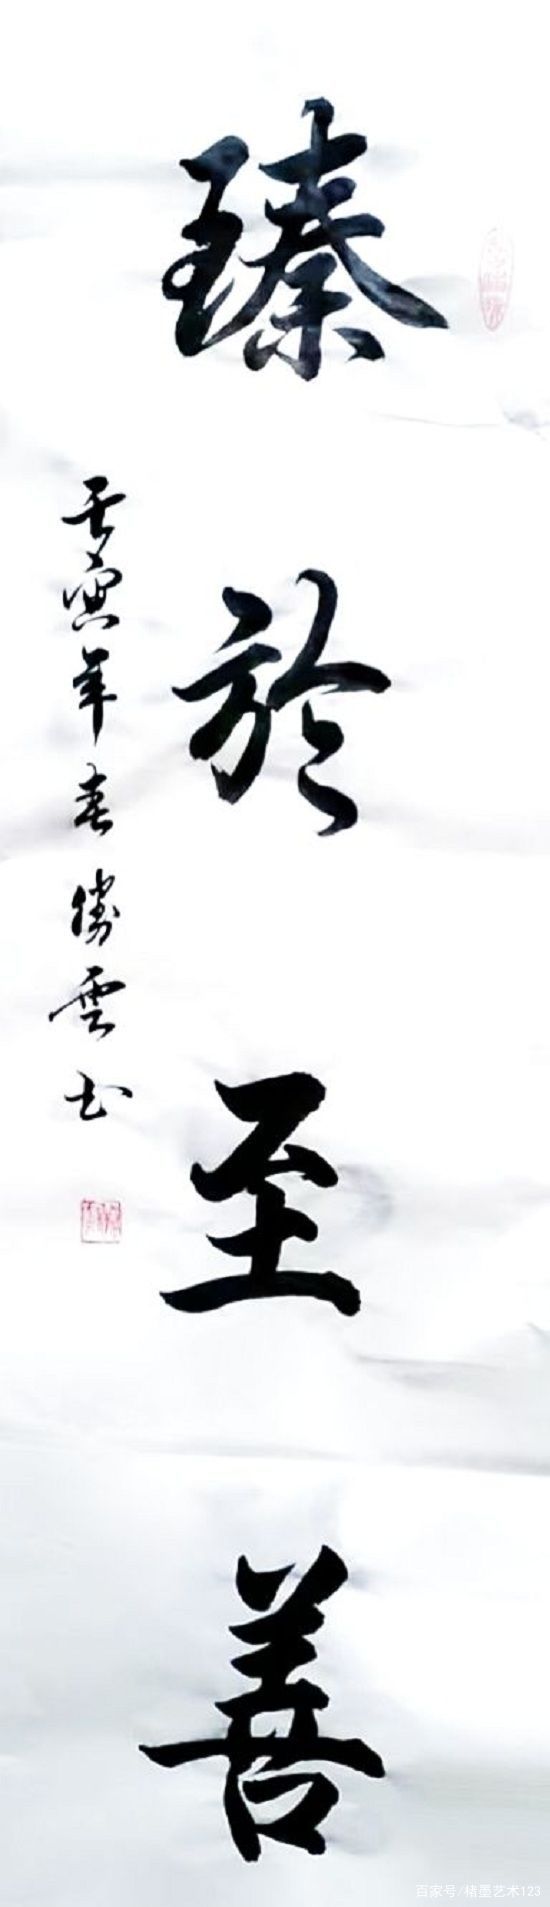 臻於至善
壬寅年春勝雲书
百家号/楮墨艺术123